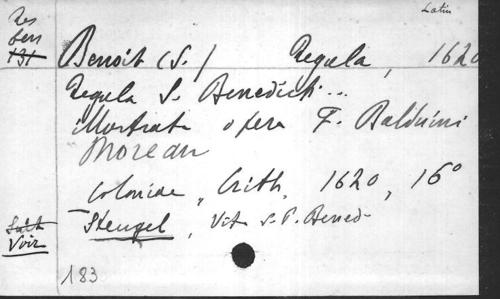 Latin
Res
131
Benoit (S.) Regula, 1620
Regula S. Benedicti...
illustrata opera F. Balduini
Moreau
Coloniae, Crith, 1620, 16°
Stengel, Vita S.P. Bened.
Voir
183